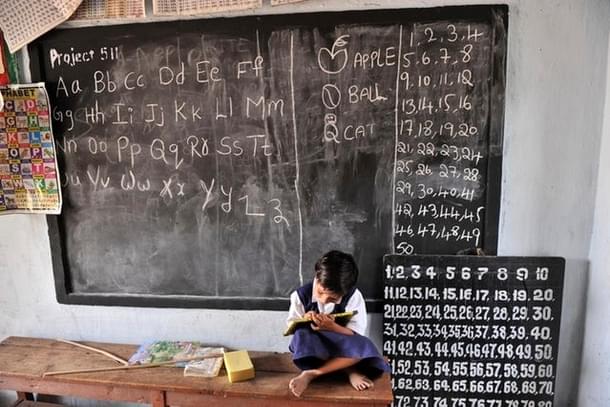 Project 511
Aa Bb Cc Dd Ee Ff
Gg Hh Ii Jj Kk Ll Mm
Nn Oo Pp Qq Rr Ss Tt
Uu Vv Ww Xx Yy Zz
APPLE
BALL
CAT
1, 2, 3, 4
5, 6, 7, 8
9, 10, 11, 12
13, 14, 15, 16
17, 18, 19, 20
21, 22, 23, 24
25, 26, 27, 28
29, 30, 40, 41
42, 43, 44, 45
46, 47, 48, 49
50
1 2 3 4 5 6 7 8 9 10
11.12.13.14.15.16.17.18.19.20.
21.22.23.24.25.26.27.28.29.30.
31.32.33.34.35.36.37.38.39.40.
41.42.43.44.45.46.47.48.49.50.
51.52.53.54.55.56.57.58.59.60.
61.62.63.64.65.66.67.68.69.70.
72 73 74 75 76 77 78 79 80